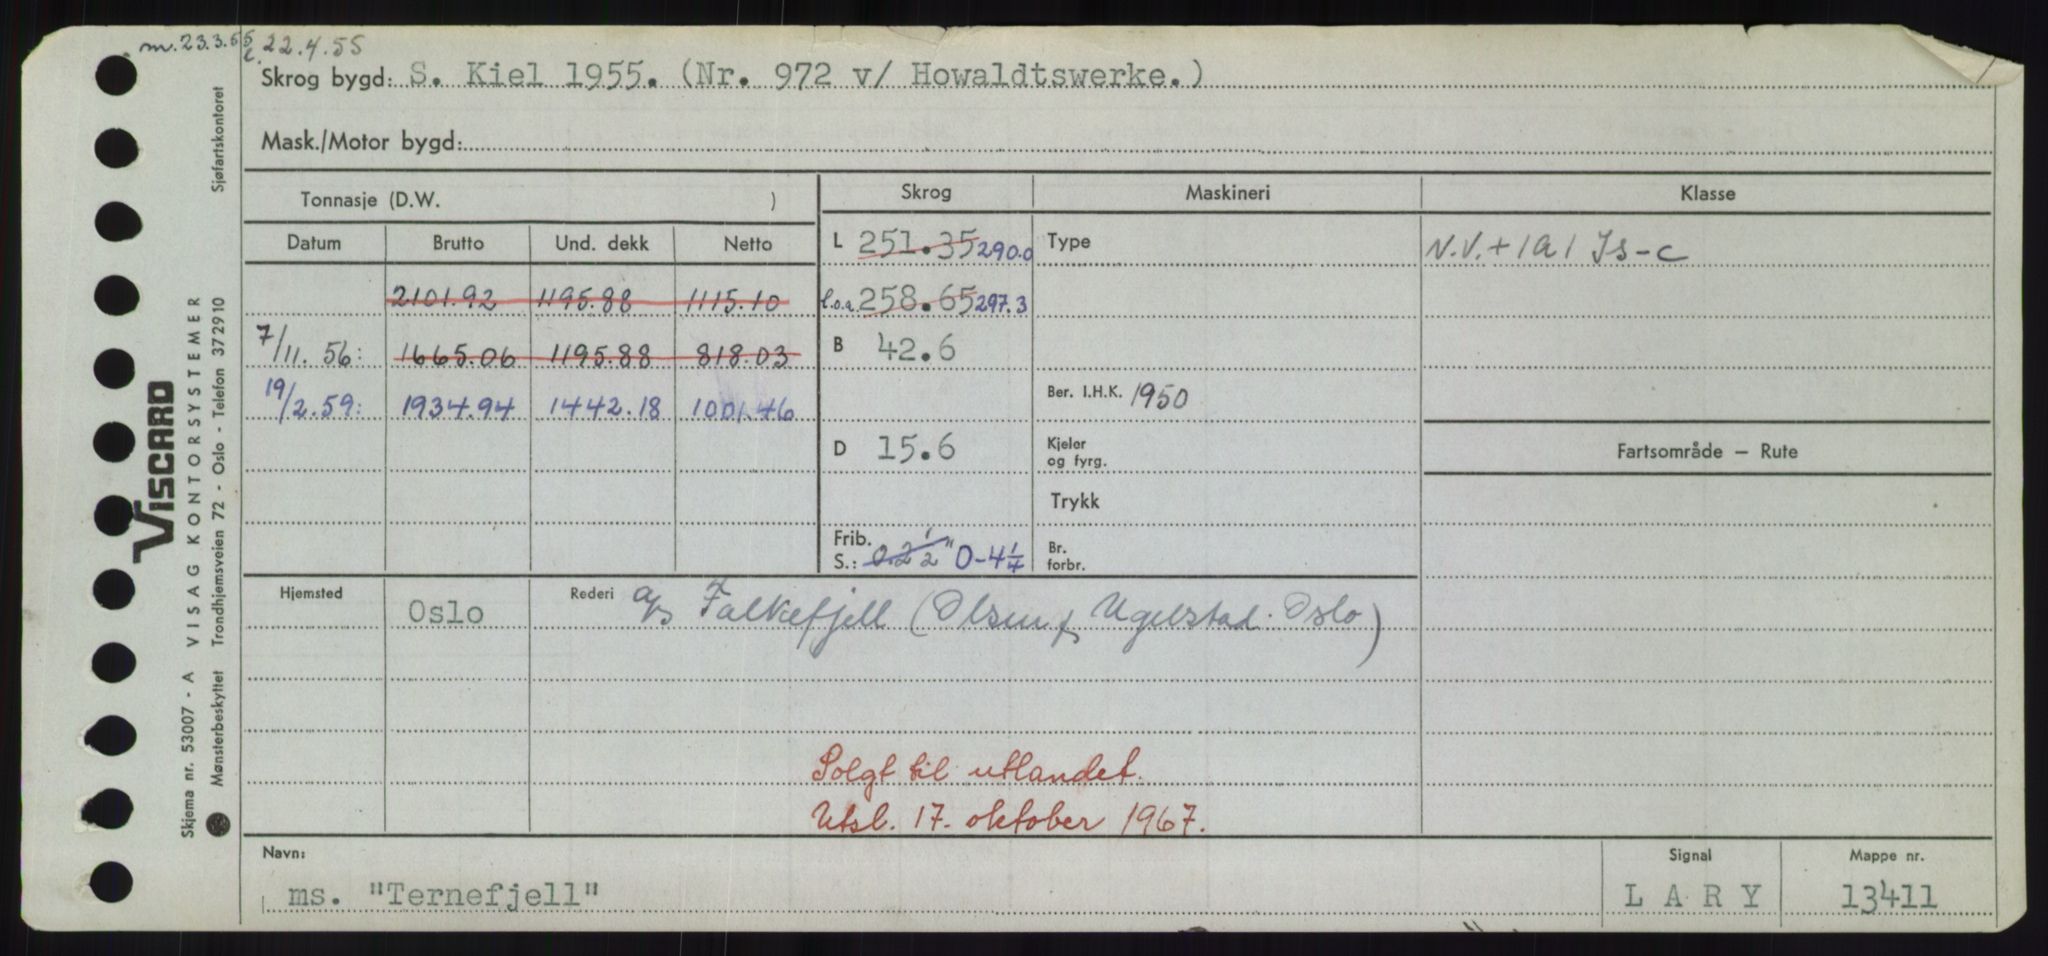 m. 23.3.55 l. 22.4.55
Skrog bygd: S. Kiel 1955. (Nr. 972 v/ Howaldtswerke.)
Mask./Motor bygd:
Tonnasje (D.W. )
Skrog Maskineri Klasse
Datum Brutto Und. dekk Netto
L 251.35 290.0 Type N.V. + 1A1 Is-C
2101.92 1195.88 1115.10 l.o.a. 258.65 297.3
7/11.56: 1665.06 1195.88 818.03 B 42.6
19/2.59: 1934.94 1442.18 1001.46 Ber. I.H.K. 1950
D 15.6 Kjeler og fyrg. Fartsområde — Rute
Trykk
Frib. S.: 0.2 1/2" 0-4 1/4 Br. forbr.
Hjemsted Oslo Rederi a/s Falkefjell (Olsen & Ugelstad. Oslo)
Solgt til utlandet.
Utsl. 17. oktober 1967.
Navn: Signal Mappe nr.
ms. "Ternefjell" L A R Y 13411
VISCARD
VISAG KONTORSYSTEMER
Trondhjemsveien 72 - Oslo - Telefon 372910
Sjøfartskontoret
Skjema nr. 53007 - A
Mønsterbeskyttet